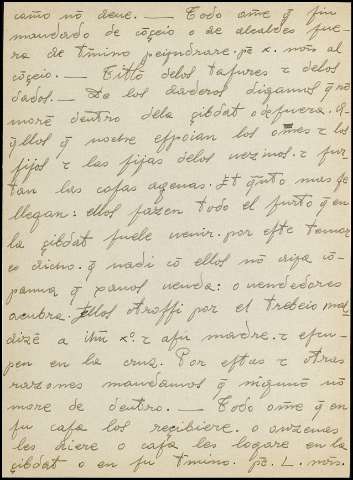 camo nõ deue. — Todo ome q̃ sin
mandado de cõçeio o de alcaldes fue-
ra de tmino peyndrare. pe. x. mrs. al
cõçeio. — Titto delos tafures τ delos
dados. — De los daderos digamos q̃ nõ
more dentro dela çibdat o defuera. A-
q̃llos q̃ noche espoian los omes τ los
fijos τ las fijas delos uezinos. τ fur-
tan las casas agenas. Et q̃nto mas se
llegan: ellos fazen todo el furto q̃ en
la çibdat suele uenir. por este temor
es dicho. q̃ nadi cõ ellos nõ aya cõ-
panna q̃ panos uenda: o uendedores
acubra. Ellos otrossi por el trebeio mal
dizẽ a ihu xº. τ a su madre. τ escu-
pen en la cruz. Por estas τ otras
razones mandamos q̃ niguno nõ
more de dentro. — Todo ome q̃ en
su casa los reçibiere. o auzenas
les diere o casa les logare en la
çibdat o en su tmino. pe. L. mrs.